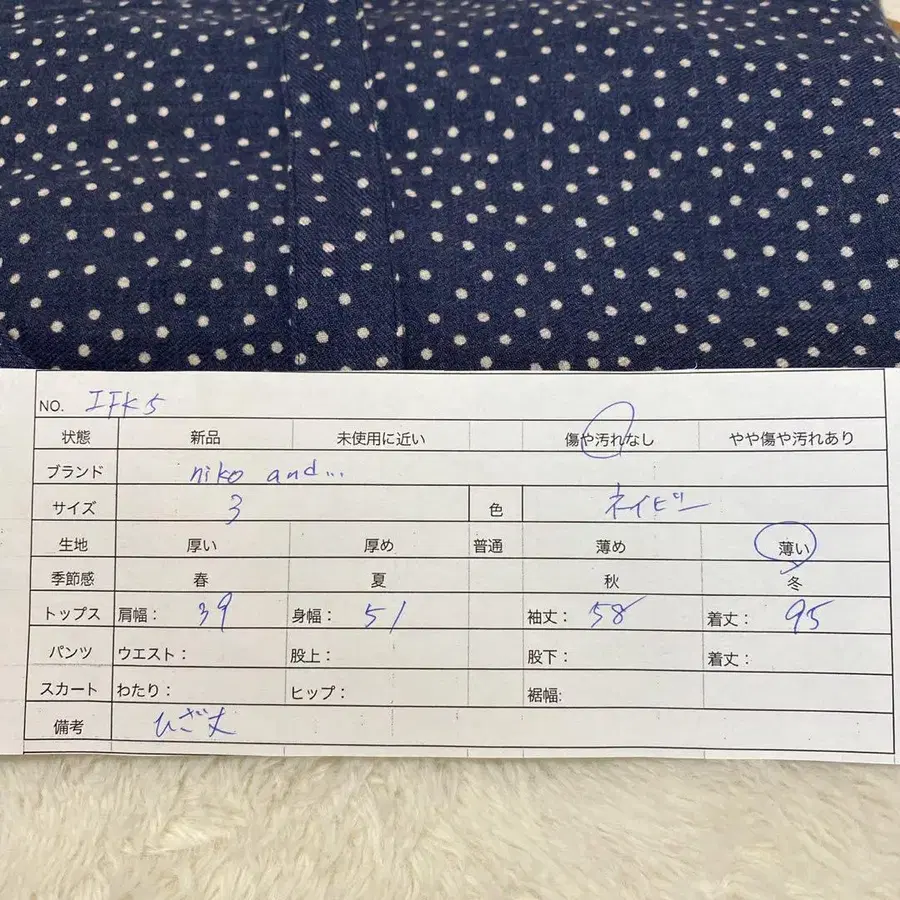 NO. IFK5
状態 新品 未使用に近い 傷や汚れなし やや傷や汚れあり
ブランド niko and...
サイズ 3 色 ネイビー
生地 厚い 厚め 普通 薄め 薄い
季節感 春 夏 秋 冬
トップス 肩幅: 39 身幅: 51 袖丈: 58 着丈: 95
パンツ ウエスト: 股上: 股下: 着丈:
スカート わたり: ヒップ: 裾幅:
備考 ひざ丈